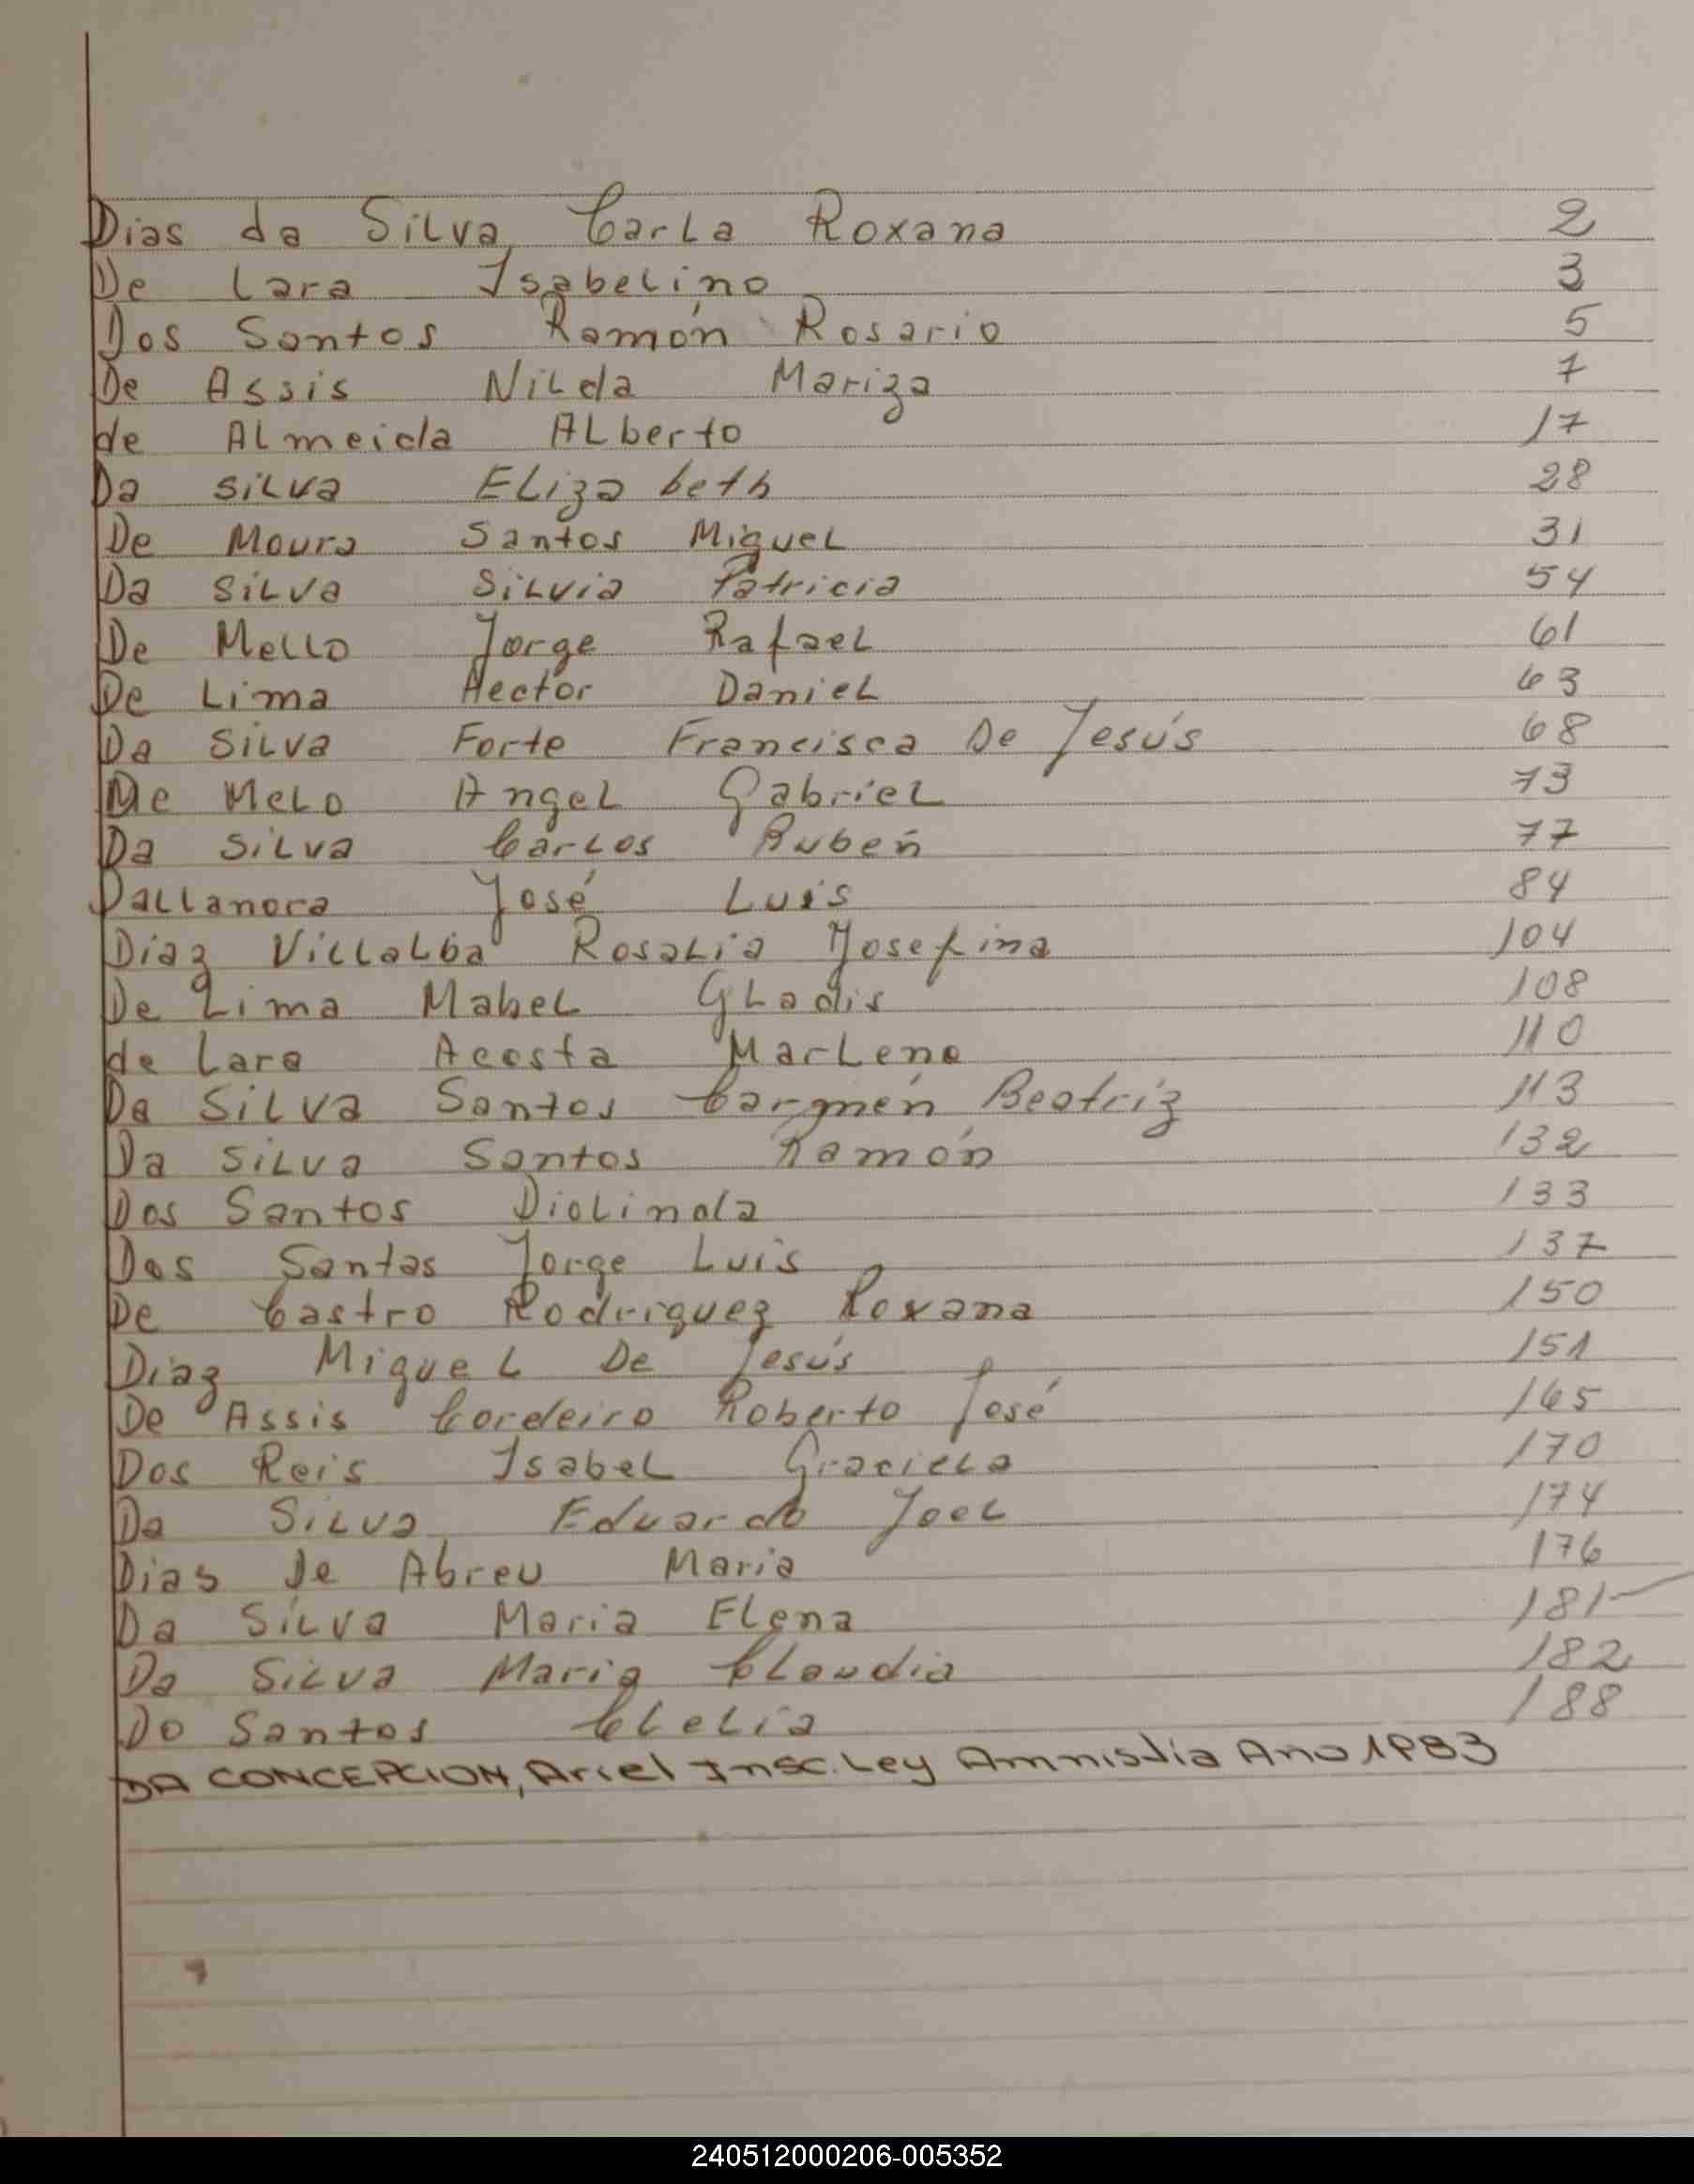 Dias da Silva Carla Roxana 2
De Lara Isabelino 3
Dos Santos Ramón Rosario 5
De Assis Nilda Mariza 7
de Almeida Alberto 17
Da Silva Elizabeth 28
De Moura Santos Miguel 31
Da Silva Silvia Patricia 54
De Mello Jorge Rafael 61
De Lima Hector Daniel 63
Da Silva Forte Francisca De Jesús 68
De Melo Angel Gabriel 73
Da Silva Carlos Rubén 77
Dallanora José Luis 84
Diaz Villalba Rosalia Josefina 104
De Lima Mabel Gladis 108
de Lara Acosta Marlene 110
Da Silva Santos Carmen Beatriz 113
Da Silva Santos Ramón 132
Dos Santos Diolinda 133
Dos Santos Jorge Luis 137
De Castro Rodriguez Roxana 150
Diaz Miguel De Jesús 151
De Assis Cordeiro Roberto José 165
Dos Reis Isabel Graciela 170
Da Silva Eduardo Joel 174
Dias de Abreu Maria 176
Da Silva Maria Elena 181
Da Silva Maria Claudia 182
Do Santos Clelia 188
DA CONCEPCION, Ariel Insc. Ley Amnistía Ano 1983
240512000206-005352